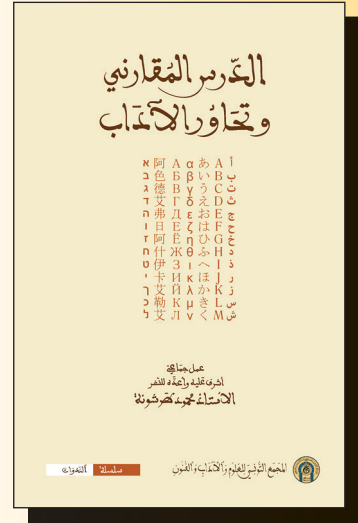 الدّرس المُقارني
وتحَاوُر الآدَاب
א 阿 А α あ A أ
ב 色 Б β い B ب
ג 德 В γ う C ت
ד 艾 Г δ え D ث
ה 弗 Д ε お E ج
ו 日 Е ζ は F ح
ז 阿 Ё η ひ G خ
ח 什 Ж θ ふ H د
ט 伊 З ι へ I ذ
י 卡 И κ ほ J ر
艾 Й λ か K ز
ך 勒 К μ き L س
ל 艾 Л ν く M ش
عمل جماعي
أشرف عليه وأعدّه للنشر
الأستاذ محمود طرشونة
المجمع التّونسيّ للعلوم والآداب والفنون
سلسلة الندوات